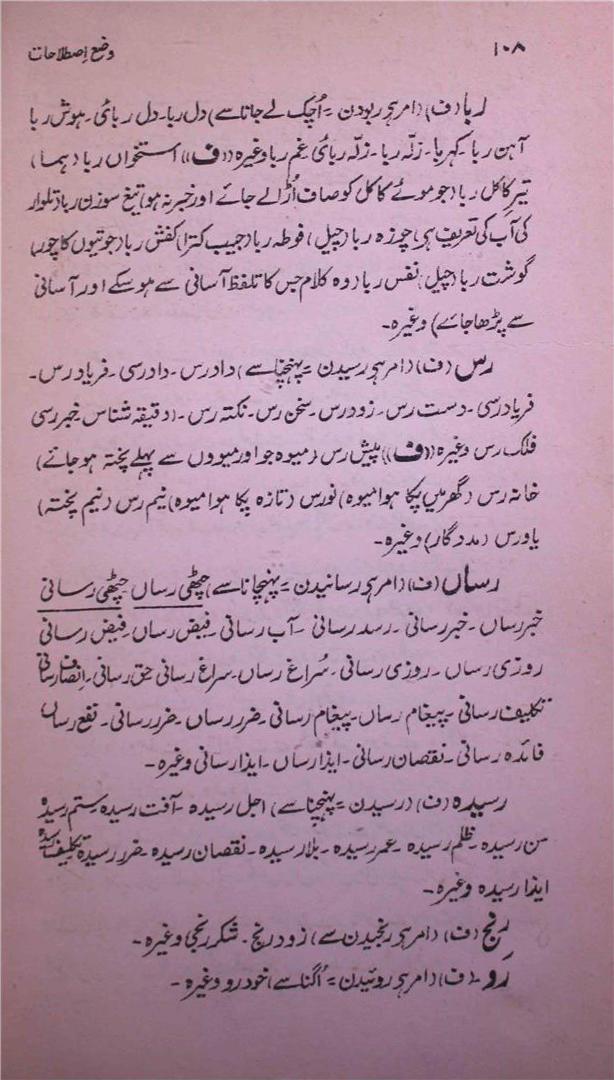 ۱۰۸ وضعِ اصطلاحات
رُبا (ف) (امر ہی ربودن = اُچک لے جانا سے) دل ربا۔ دل ربائی۔ ہوش ربا
آہن ربا۔ کہربا۔ زلّہ ربا۔ زلّہ ربائی غم ربا وغیرہ ((ف)) استخواں ربا (ہما)
تیرِ کاکل ربا (جو موئے کاکل کو صاف اُڑالے جائے اور خبر نہ ہو) تیغ سوزن ربا (تلوار
کی آب کی تعریف ہی) چوزہ ربا (چیل) فوطہ ربا (جیب کترا) کفش ربا (جوتیوں کا چور)
گوشت ربا (چیل) نفس ربا (وہ کلام جس کا تلفظ آسانی سے ہوسکے اور آسانی
سے پڑھا جائے) وغیرہ۔
رس (ف) (امر ہی رسیدن = پہنچنا سے) دادرس۔ دادرسی۔ فریادرس۔
فریادرسی۔ دست رس۔ زودرس۔ سخن رس۔ نکتہ رس۔ (دقیقہ شناس) خبررسی
فلک رس وغیرہ ((ف)) پیش رس (میوہ جو اور میووں سے پہلے پختہ ہوجائے)
خانہ رس (گھر میں پکا ہوا میوہ) نورس (تازہ پکا ہوا میوہ) نیم رس (نیم پختہ)
یاورس (مددگار) وغیرہ۔
رساں (ف) (امر ہی رسانیدن = پہنچانا سے) چٹھی رساں چٹھی رسانی
خبررساں۔ خبررسانی۔ رسدرسانی۔ آب رسانی۔ فیض رساں۔ فیض رسانی
روزی رساں۔ روزی رسانی۔ سُراغ رساں۔ سراغ رسانی حق رسانی۔ انصاف رسانی
تکلیف رسانی۔ پیغام رساں۔ پیغام رسانی۔ ضرر رساں۔ ضرر رسانی۔ نفع رساں
فائدہ رسانی۔ نقصان رسانی۔ ایذا رساں۔ ایذا رسانی وغیرہ۔
رسیدہ (ف) (رسیدن = پہنچنا سے) اجل رسیدہ۔ آفت رسیدہ۔ ستم رسیدہ
سن رسیدہ۔ ظلم رسیدہ۔ عمر رسیدہ۔ بلا رسیدہ۔ نقصان رسیدہ۔ ضرر رسیدہ تکلیف رسیدہ
ایذا رسیدہ وغیرہ۔
رنج (ف) (امر ہی رنجیدن سے) زودرنج۔ شکررنجی وغیرہ۔
رو۔ (ف) (امر ہی روئیدن = اُگنا سے) خودرو وغیرہ۔